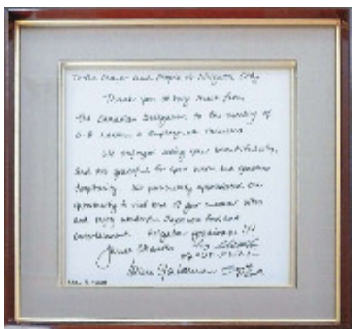 To the Mayor and People of Niigata City
Thank you so very much from
the Canadian Delegation to the meeting of
G-8 Labour & Employment Ministers
We enjoyed seeing your beautiful city,
and are grateful for your warm and generous
hospitality. We particularly appreciated our
opportunity to visit one of your museum sites
and enjoy wonderful Japanese food and
entertainment. Arigatou gozaimasu !!!